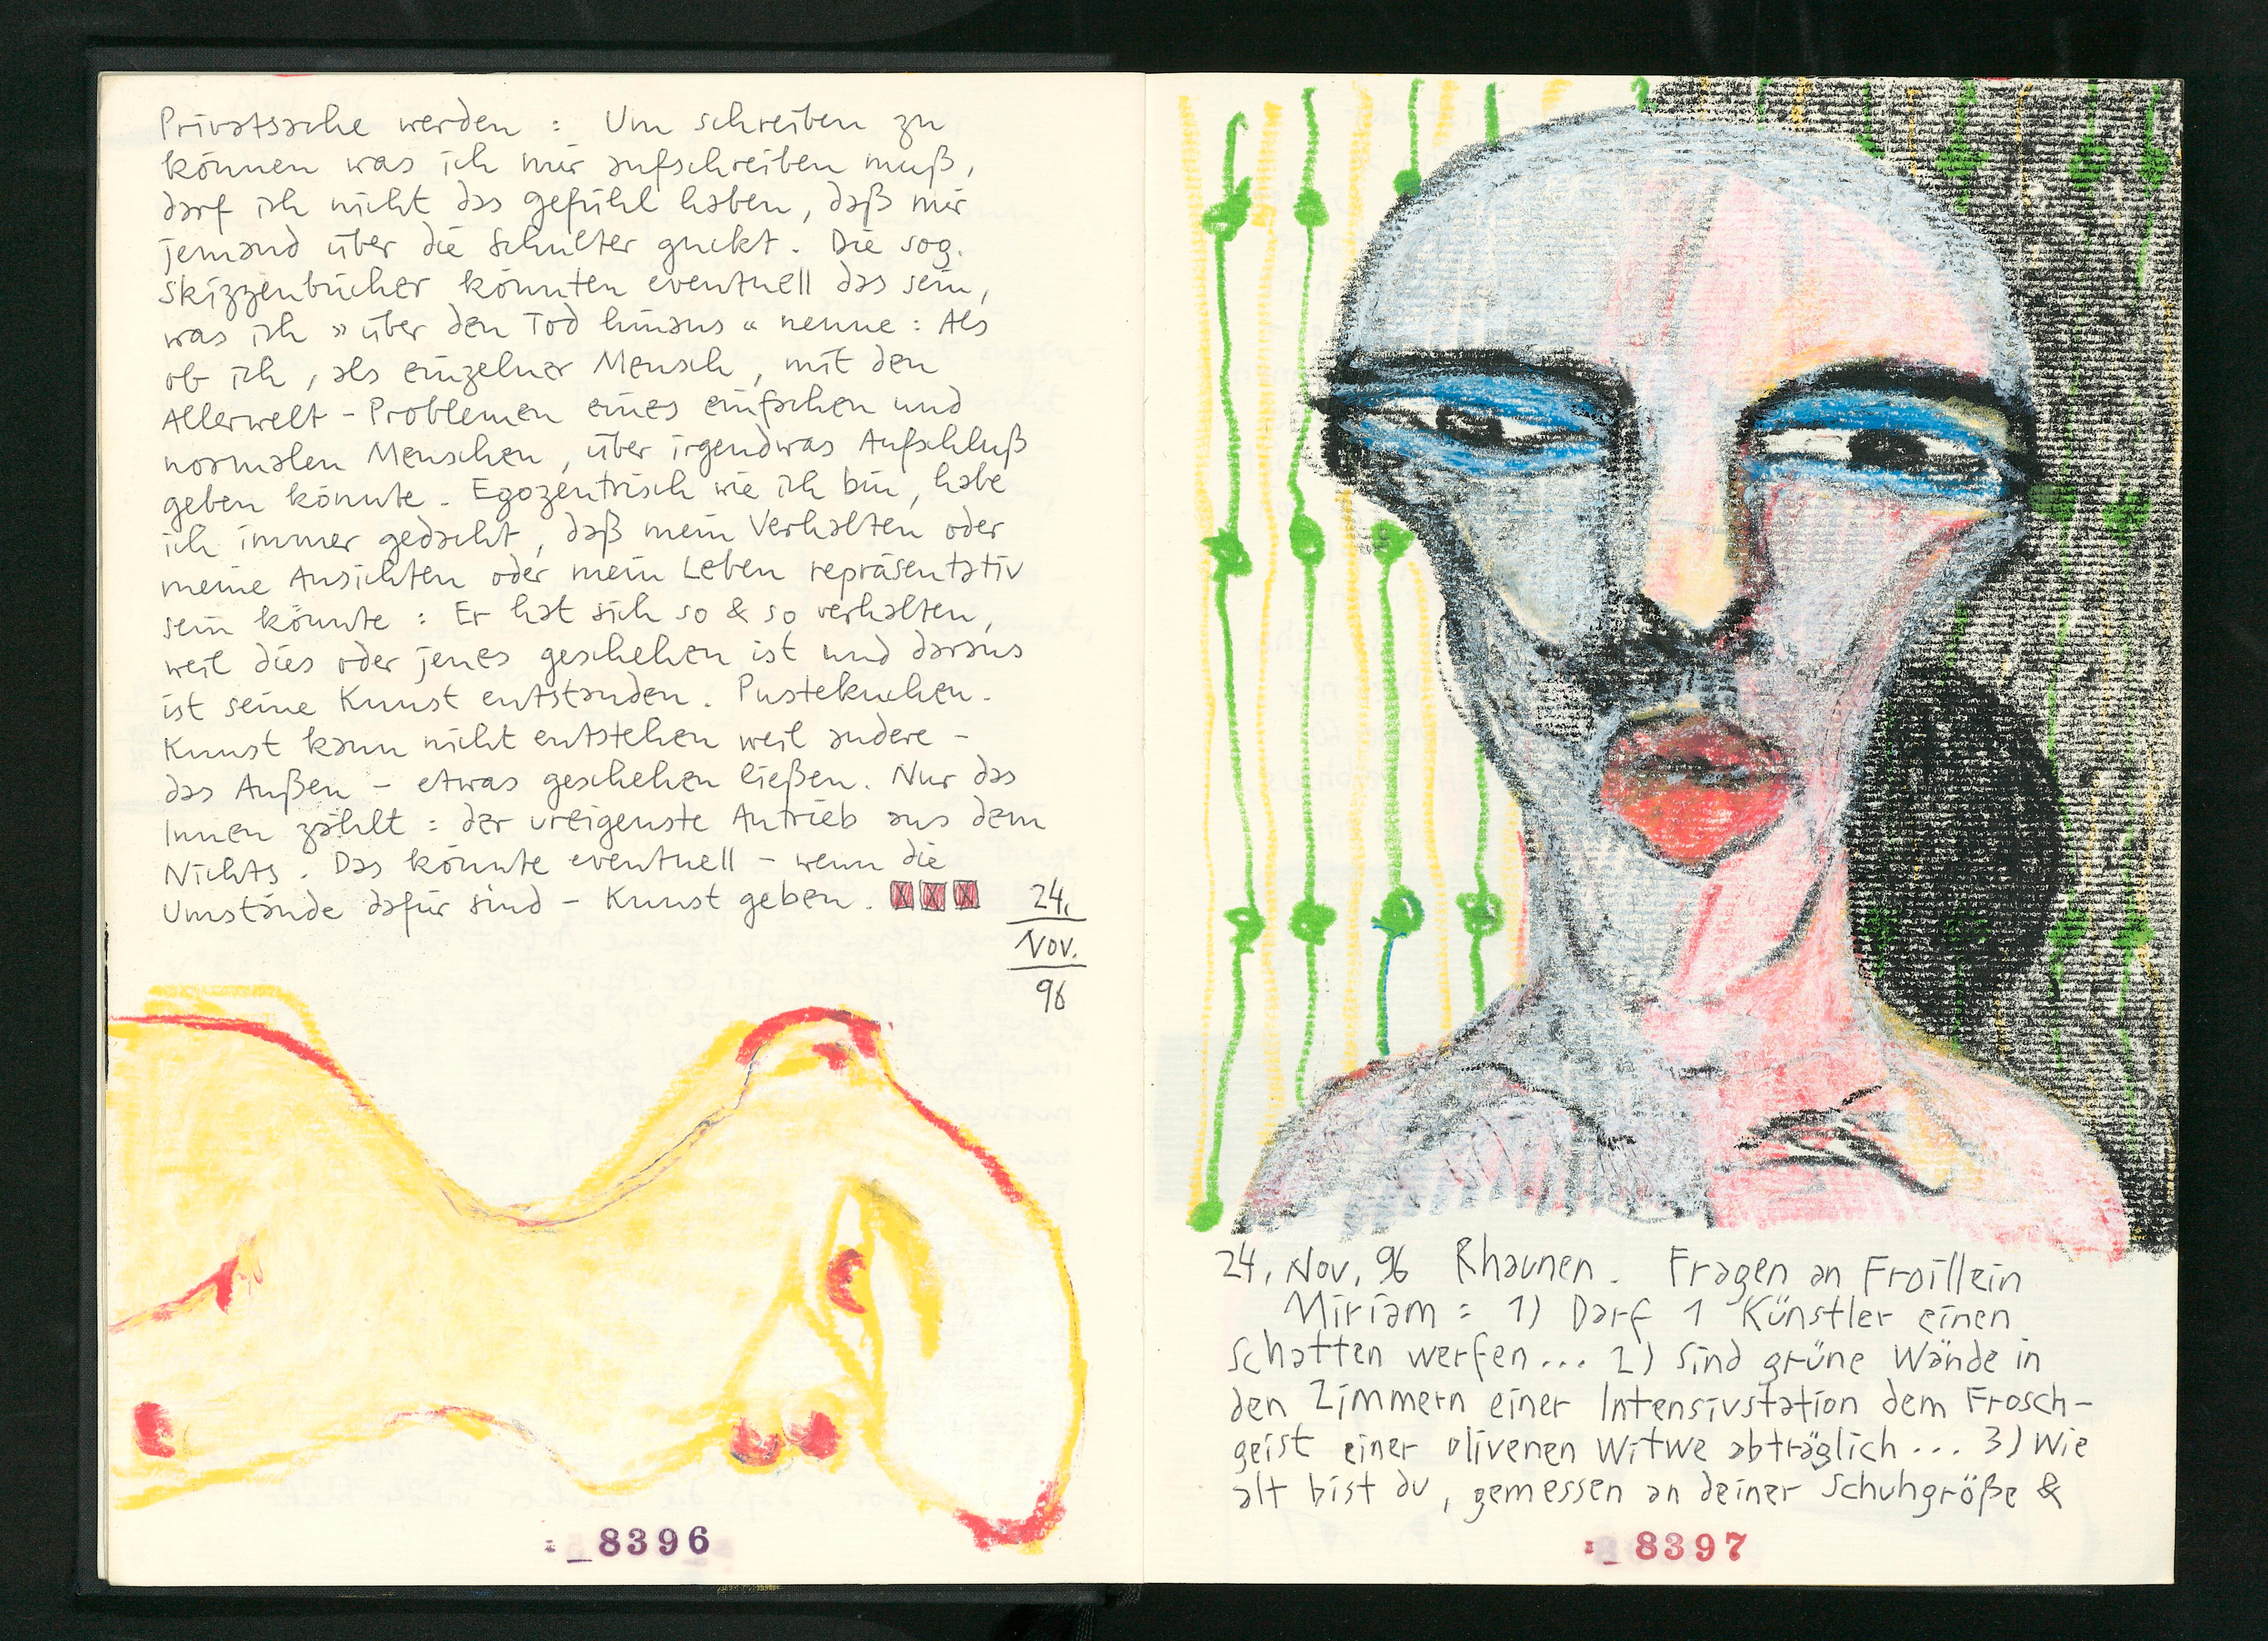 Privatsache werden : Um schreiben zu
können was ich mir aufschreiben muß,
darf ich nicht das gefühl haben, daß mir
jemand über die Schulter guckt. Die sog.
Skizzenbücher könnten eventuell das sein,
was ich » über den Tod hinaus « nenne : Als
ob ich, als einzelner Mensch, mit den
Allerwelt - Problemen eines einfachen und
normalen Menschen, über irgendwas Aufschluß
geben könnte. Egozentrisch wie ich bin, habe
ich immer gedacht, daß mein Verhalten oder
meine Ansichten oder mein Leben repräsentativ
sein könnte : Er hat sich so & so verhalten,
weil dies oder jenes geschehen ist und daraus
ist seine Kunst entstanden. Pustekuchen.
Kunst kann nicht entstehen weil andere -
das Außen - etwas geschehen ließen. Nur das
Innen zählt : der ureigenste Antrieb aus dem
Nichts. Das könnte eventuell - wenn die
Umstände dafür sind - Kunst geben.
24.
Nov.
96
: _8396
24. Nov. 96 Rhaunen. Fragen an Froillein
Miriam : 1) Darf 1 Künstler einen
Schatten werfen... 2) Sind grüne Wände in
den Zimmern einer Intensivstation dem Frosch-
geist einer olivenen Witwe abträglich... 3) Wie
alt bist du, gemessen an deiner Schuhgröße &
: _8397